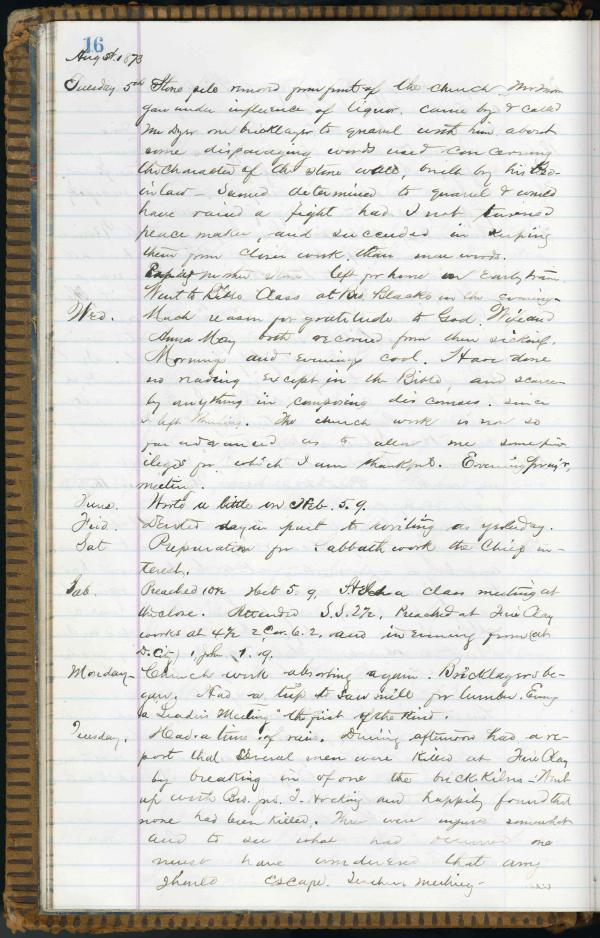 16
August. 1873
Tuesday 5th Stone pile removed from front of the church Mr Mor
gan under influence of liquor. came by & called
Mr Dyer our bricklayer to quarrel with him about
some disparaging words used concerning
the character of the stone wall, built by his Bro-
in law - Seemed determined to quarrel & would
have raised a fight had I not turned
peace maker, and succeeded in keeping
them from closer work than mere words.
left for home on Early train.
Went to Bible Class at Bro Blacks in the evening.
Wed. Much reason for gratitude to God. Wife and
Anna May both recovered from their sickness.
Mornings and Evenings cool. Have done
no reading Except in the Bible, and scarce-
ly anything in composing discourses. since
I left The church work is now so
far advanced as to allow me some priv
ileges for which I am thankful. Evening prayer,
meeting.
Thurs. Wrote a little on Heb. 5. 9.
Frid. Devoted day in part to writing as yesterday.
Sat Preparation for Sabbath work the Chief in-
terest.
Sab. Preached 10½ Heb 5. 9, a class meeting at
the close. Attended S.S. 2½, Preached at Fire Clay
works at 4½ 2 Cor. 6. 2. and in Evening from (at
D. City) 1 John 1. 9.
Monday - Church work absorbing again. Bricklayers be-
gan. Had a trip to Saw mill for lumber. Eveng
a "Leaders Meeting" the first of the Kind.
Tuesday. Had a time of rain. During afternoon had a re-
port that Several men were Killed at Fire Clay
by breaking in of one the brick Kilns - Went
up with Bro. Jno. T. Hocking and happily found that
none had been Killed. Three were injured somewhat
and to see what had occurred one
must have wondered that any
should escape. Teachers meeting -